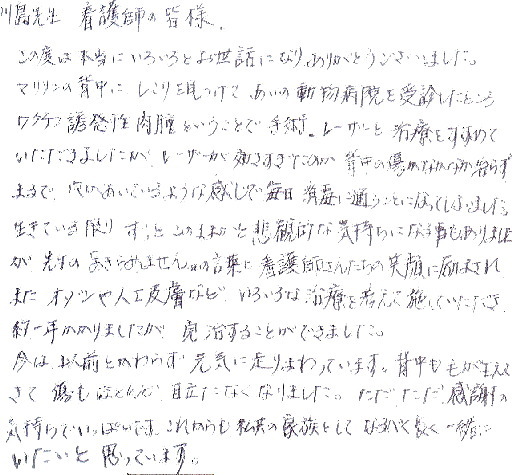 川島先生 看護師の皆様、
この度は本当にいろいろとお世話になり、ありがとうございました。
マリリンの背中にしこりを見つけて、あいの動物病院を受診したところ
ワクチン誘発性肉腫ということで手術。レーザーと治療をすすめて
いただきましたが、レーザーが効きすぎたのか背中の傷がなかなか治らず
まるで穴があいているような感じで毎日消毒に通うことになってしまいました。
生きている限りずっとこのままかと悲観的な気持ちになる事もありました
が先生のあきらめませんの言葉に看護師さんたちの笑顔に励まされ
またオゾンや人工皮膚など、いろいろな治療を考えて施していただき
約一年かかりましたが、完治することができました。
今は以前とかわらず元気に走りまわっています。背中も毛がはえて
きて傷もほとんど目立たなくなりました。ただただ感謝の
気持ちでいっぱいです。これからも私共の家族としてなるべく長く一緒に
いたいと思っています。